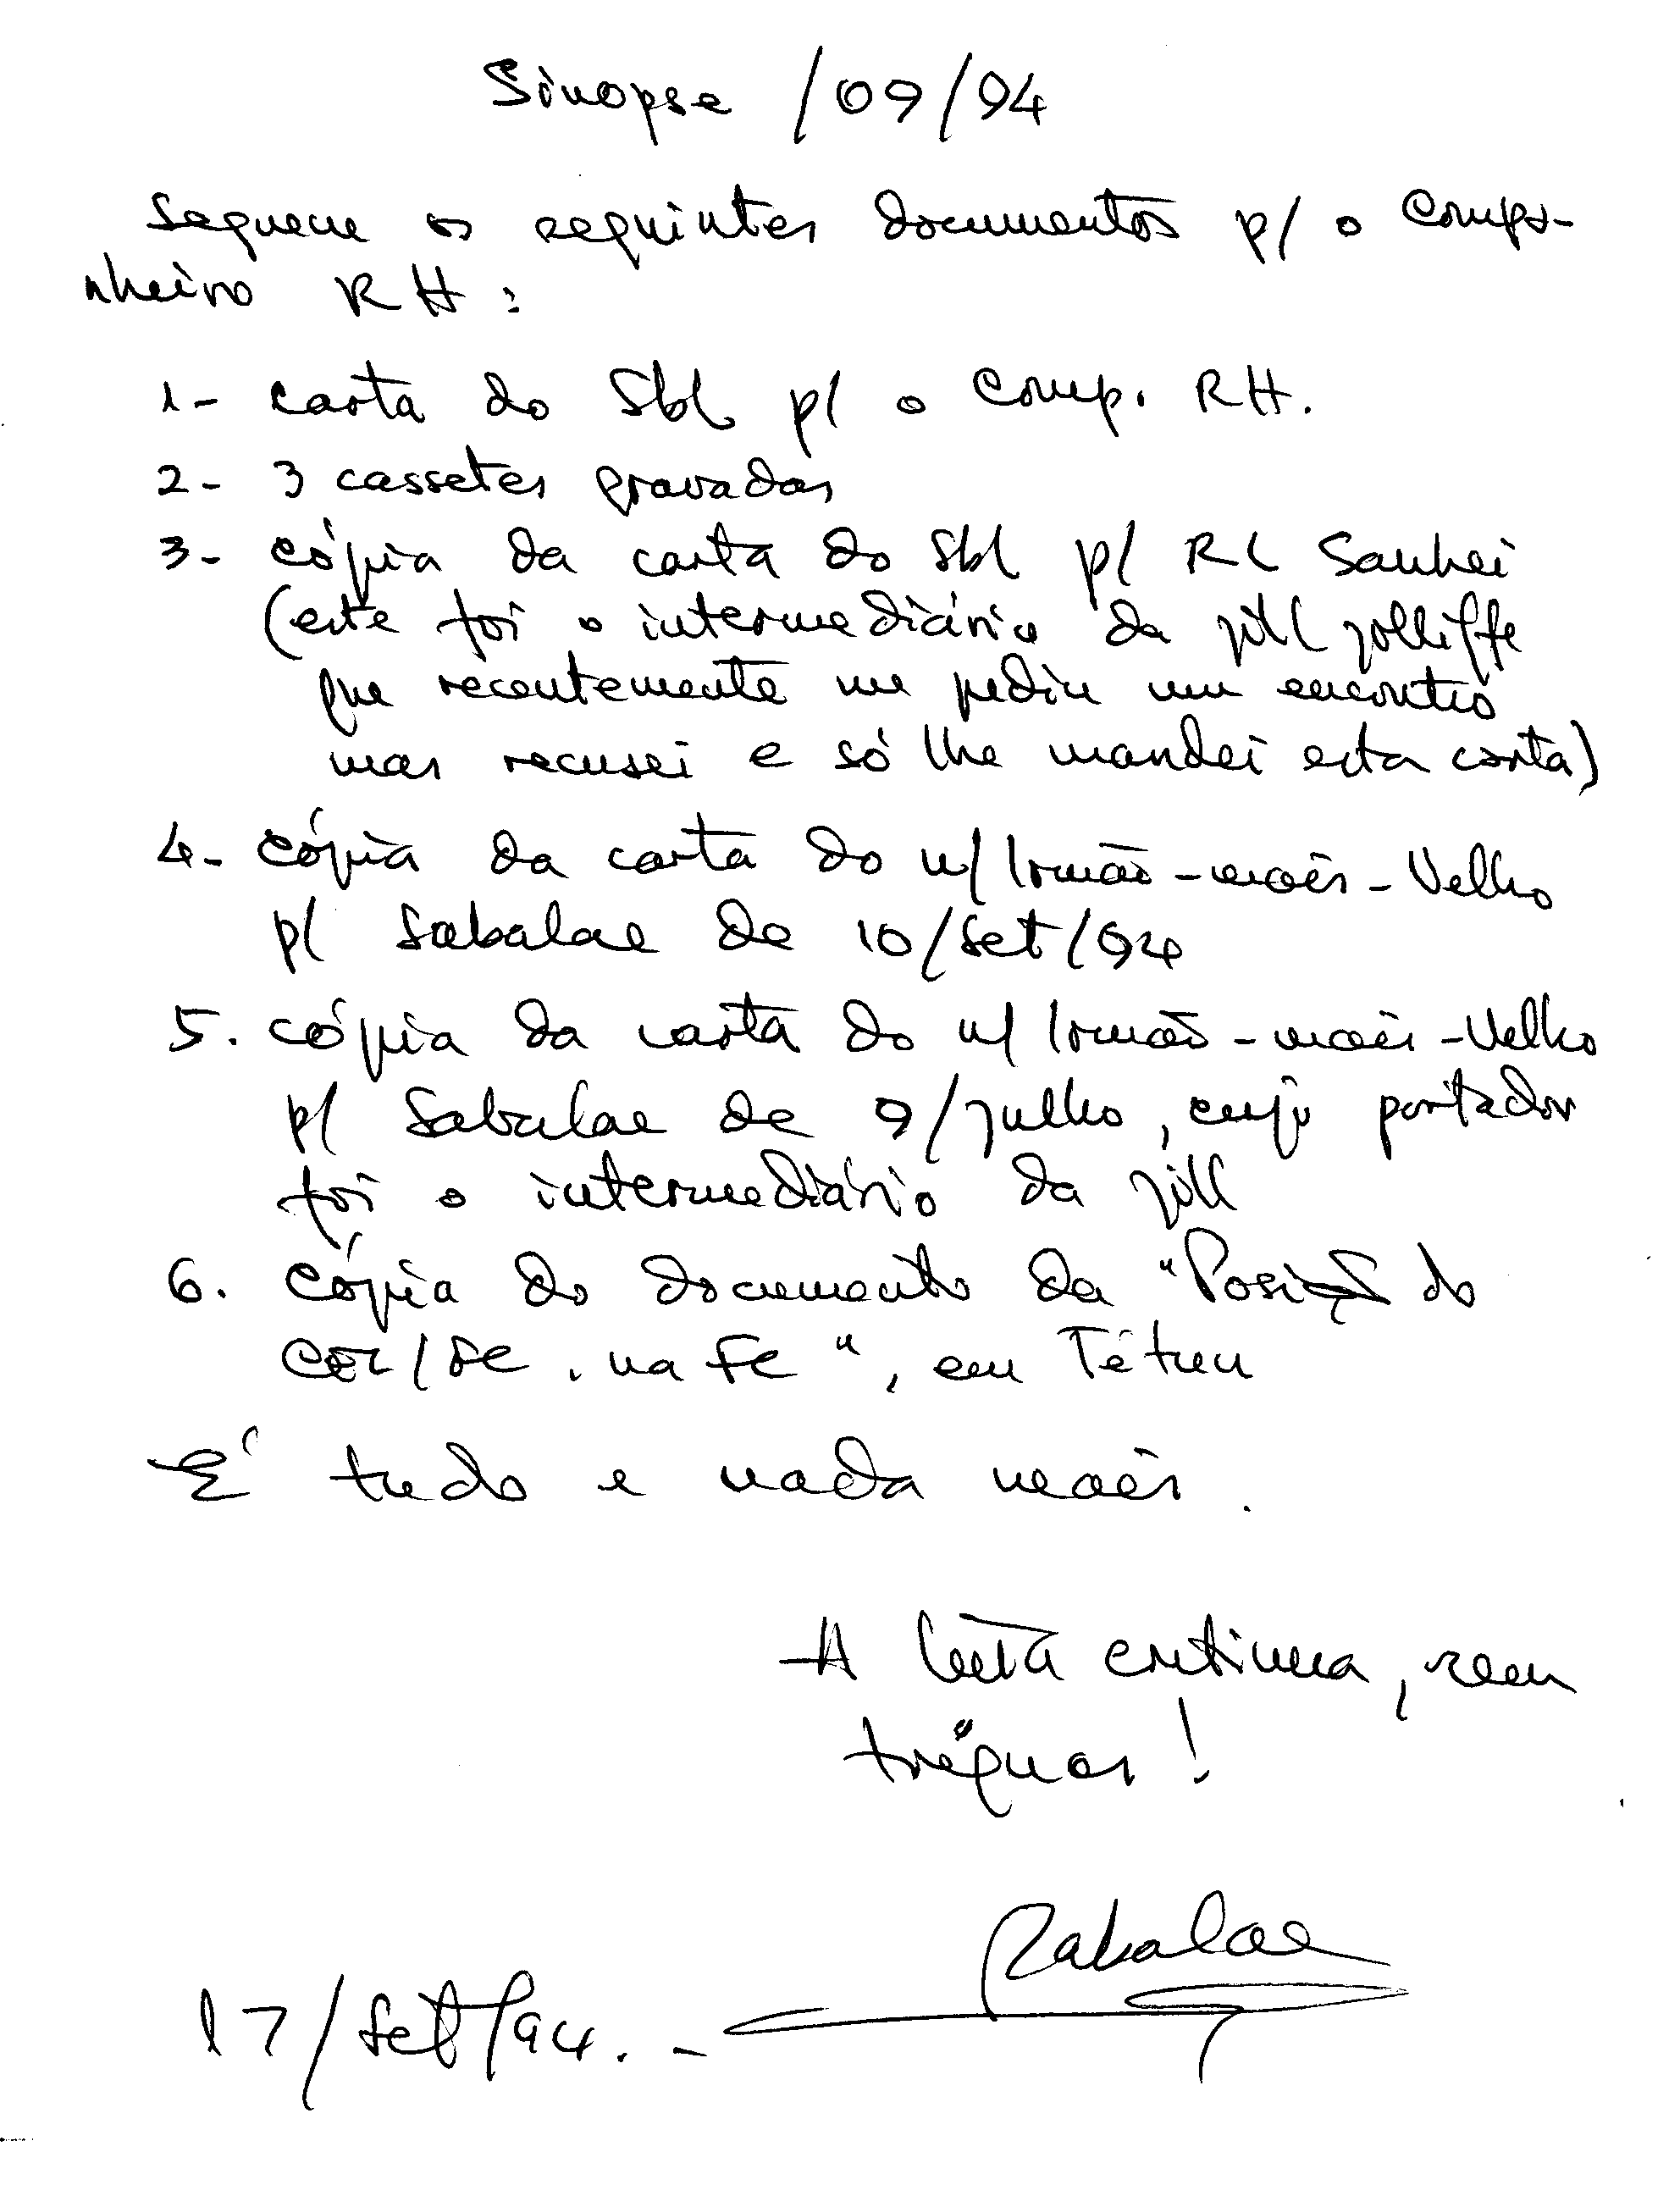 Sinopse /09/94
Seguem os seguintes documentos p/ o Compa-
nheiro RH:
1- carta do Sbl p/ o Comp. RH.
2- 3 cassetes gravadas
3- cópia da carta do Sbl p/ RL Sanhei
(este foi o intermediário da Jill Jolliffe
que recentemente me pediu um encontro
mas recusei e só lhe mandei esta carta)
4- cópia da carta do n/ Irmão-mais-Velho
p/ Sabalae de 10/Set/94
5. cópia da carta do n/ Irmão-mais-Velho
p/ Sabalae de 9/Julho, cujo portador
foi o intermediário da Jill
6. Cópia do documento da "Posição do
na FC", em Tétun
É tudo e nada mais.
A luta continua, sem
tréguas!
Sabalae
17/Set/94.-